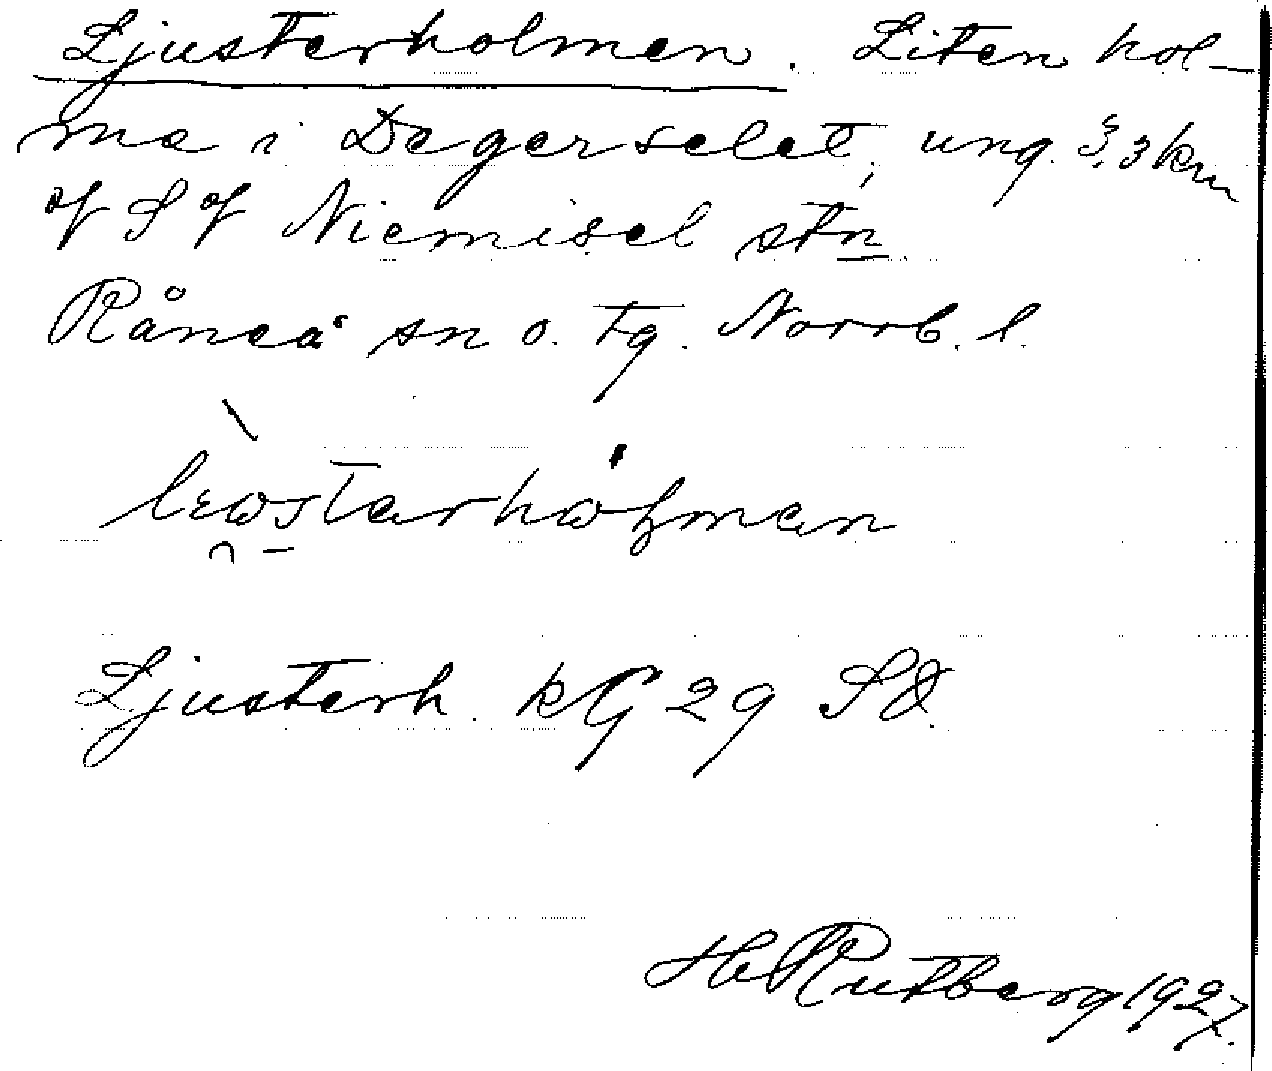 Ljusterholmen. Liten hol-
me i Degerselet, ung. 3,3 km
S Niemisel stn
Råneå sn o. tg. Norrb. l.
Ljusterh. kG 29 SO.
H Rutberg 1927.